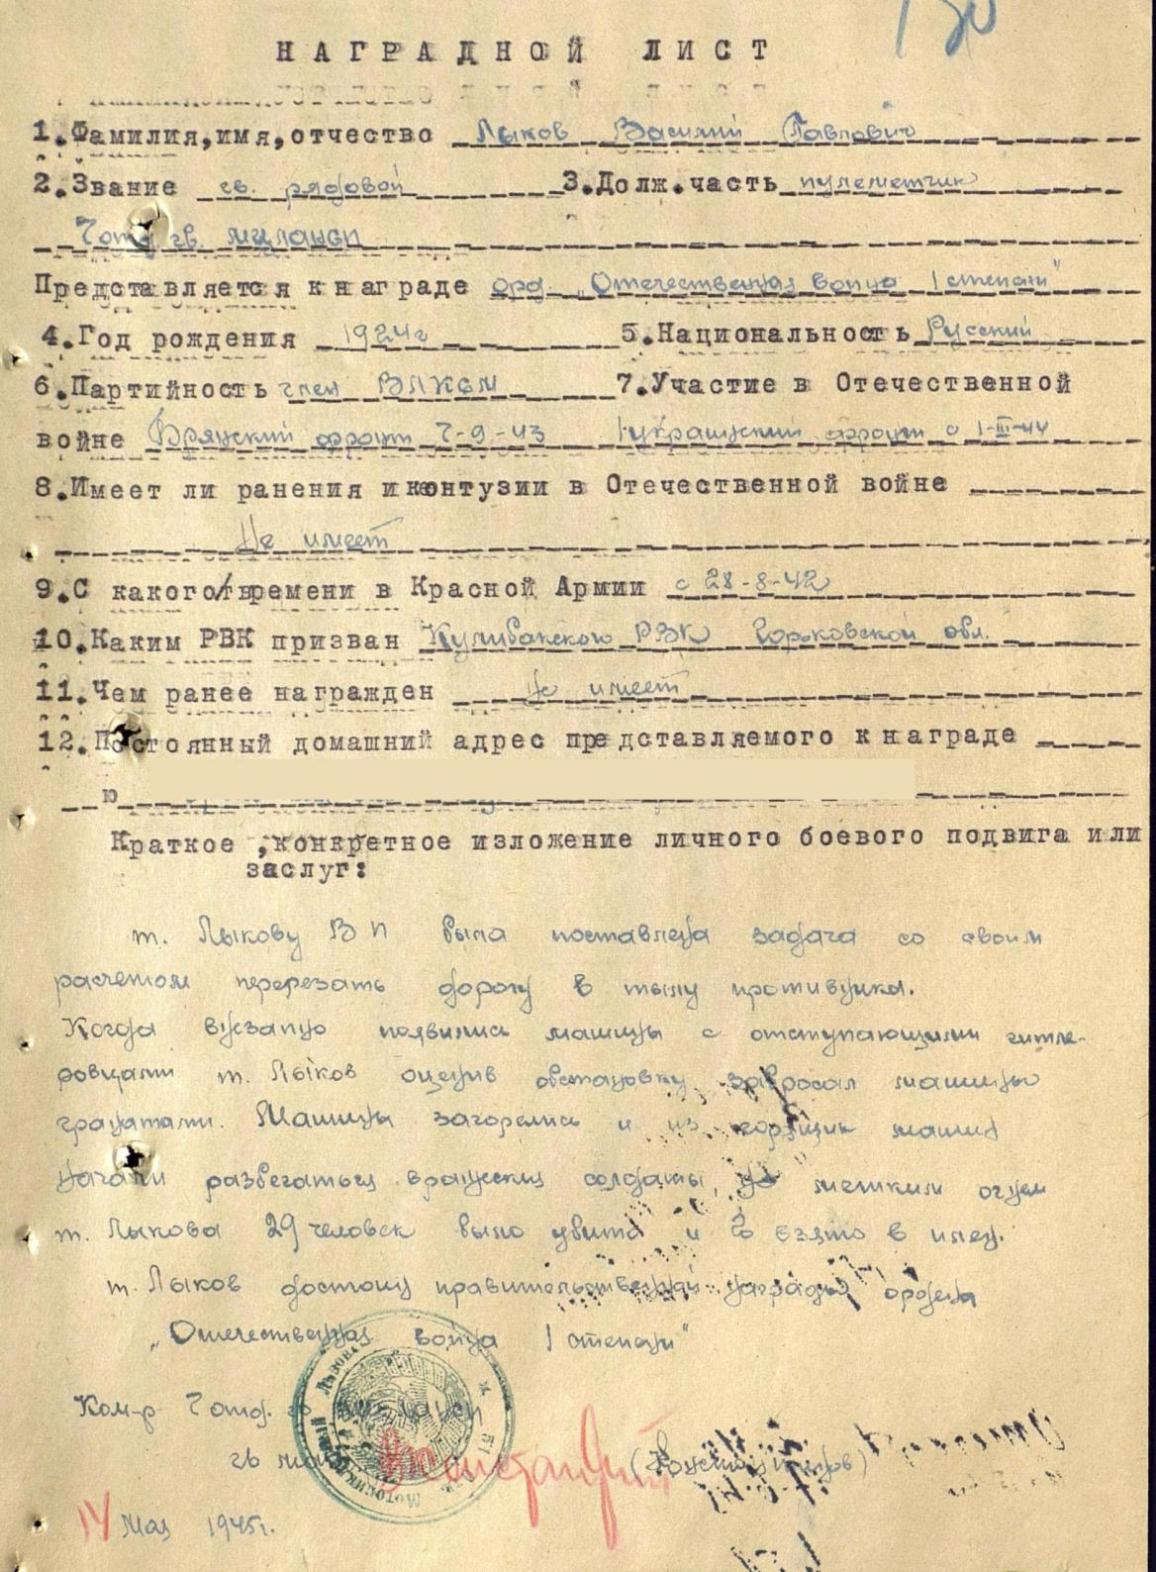 НАГРАДНОЙ ЛИСТ
1.Фамилия,имя,отчество Лыков Василий Павлович
2.Звание гв. рядовой 3.Долж.часть пулеметчик
7 отд гв.
Представляется к награде орд. „Отечественная война I степени"
4.Год рождения 1924г 5.Национальность Русский
6.Партийность член ВЛКСМ 7.Участие в Отечественной
войне Брянский фронт 7-9-43 1 украинский фронт с 1-III-44
8.Имеет ли ранения и контузии в Отечественной войне
Не имеет
9.С какого времени в Красной Армии с 28-8-42
10.Каким РВК призван Кулибакского РВК Горьковской обл.
11.Чем ранее награжден Не имеет
12.Постоянный домашний адрес представляемого к награде
ю
Краткое ,конкретное изложение личного боевого подвига или
заслуг:
т. Лыкову В П была поставлена задача со своим
расчетом перерезать дорогу в тылу противника.
Когда внезапно появились машины с отступающими гитле-
ровцами т. Лыков оценив обстановку забросал машины
гранатами. Машины загорелись и из машин
начали разбегаться вражеских солдаты, метким огнем
т. Лыкова 29 человек было убито и взято в плен.
т. Лыков достоин правительственной награды ордена
„Отечественная война I степени"
Ком-р 7 отд. гв
гв
14 Мая 1945г.